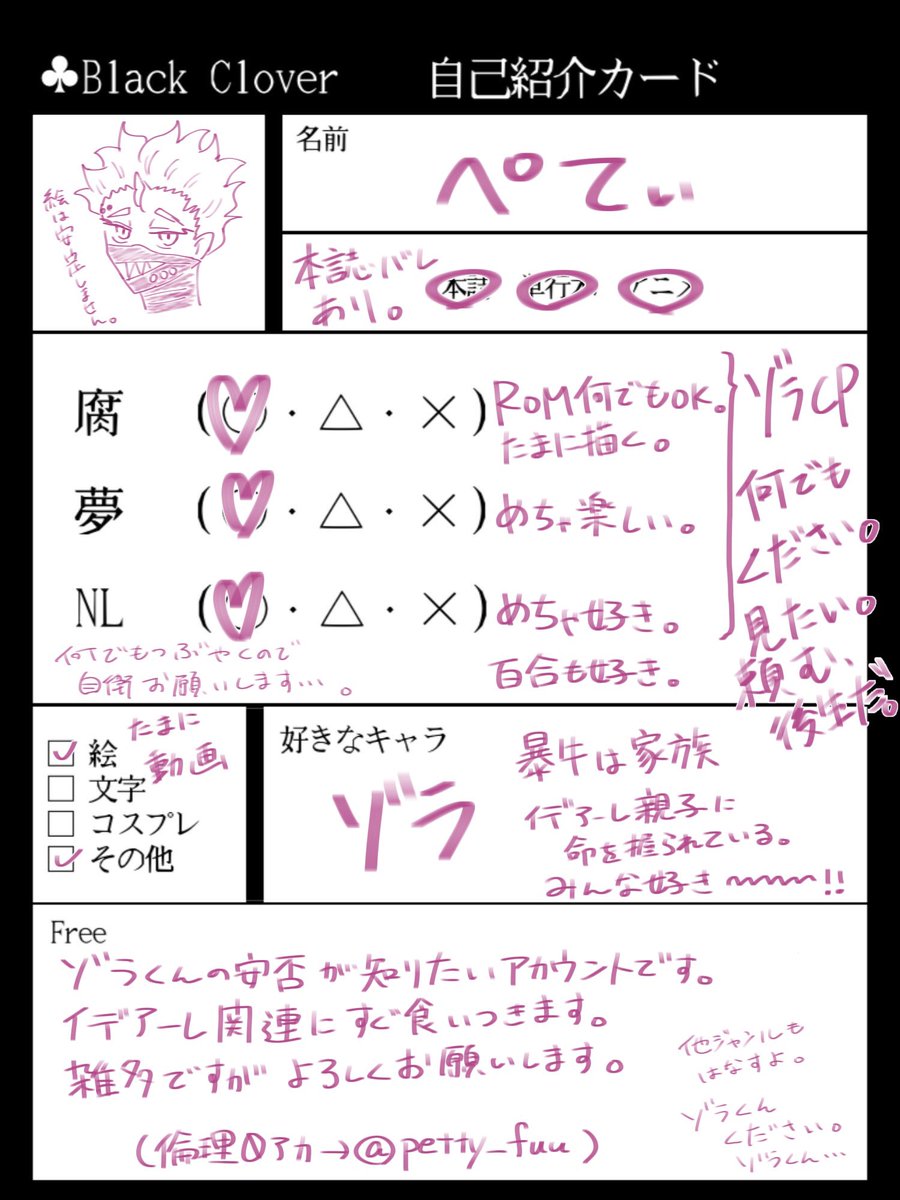 ♣Black Clover 自己紹介カード
絵は安定しません。
名前
ぺてぃ
本誌バレ
あり。
本誌
単行
アニ
腐 (○・△・×)
ROM何でもOK。
たまに描く。
夢 (○・△・×)
めちゃ楽しい。
NL (○・△・×)
めちゃ好き。
百合も好き。
何でもつぶやくので
自衛お願いします…。
ゾラCP
何でも
ください。
見たい。
頼む、
後生だ。
☑ 絵
たまに
動画
☐ 文字
☐ コスプレ
☑ その他
好きなキャラ
ゾラ
暴牛は家族
イデアーレ親子に
命を握られている。
みんな好き〜〜〜!!
Free
ゾラくんの安否が知りたいアカウントです。
イデアーレ関連にすぐ食いつきます。
雑多ですがよろしくお願いします。
(倫理0アカ→@petty_fuu)
他ジャンルも
はなすよ。
ゾラくん
ください。
ゾラくん…